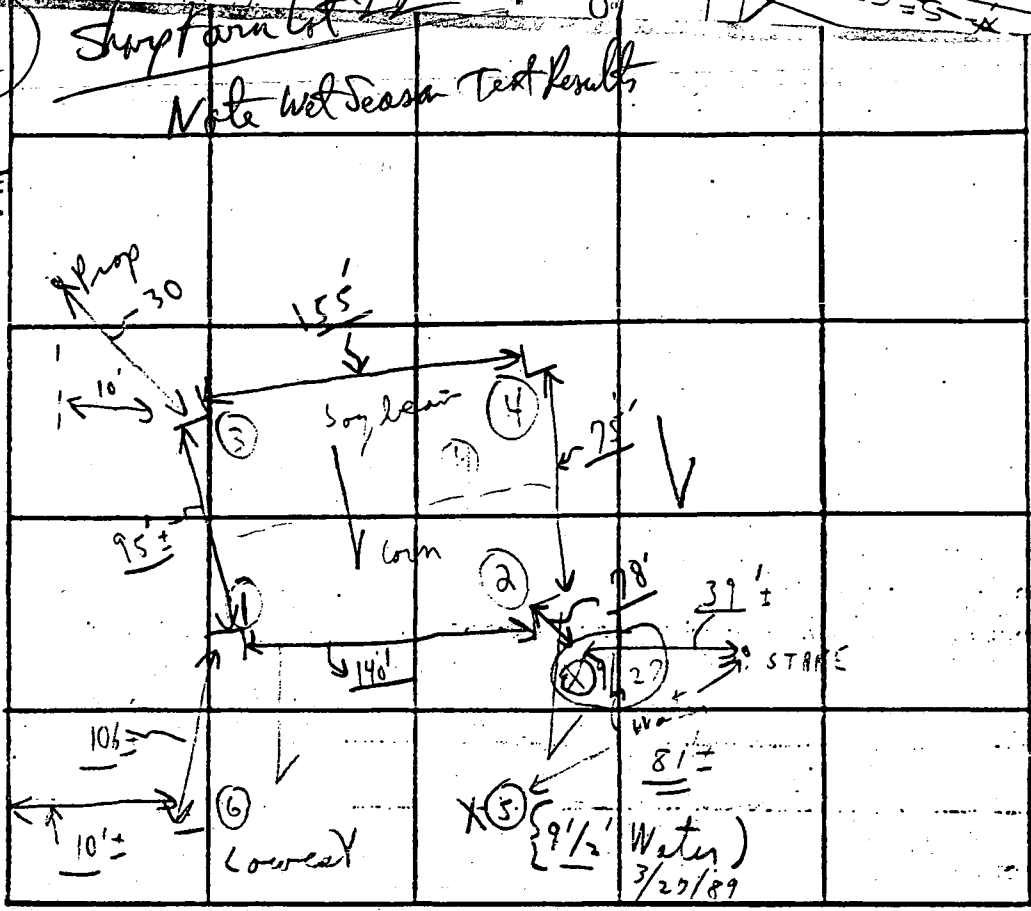 Sharp Farm Lot
Note Wet Season Test Results
Prop
30
155'
10'
③
Soy bean
④
75'
95'±
Corn
①
②
78'
39'±
140'
STAKE
106±
81'±
⑥
X⑤
10'±
Lowest
9 1/2' Water)
3/27/89